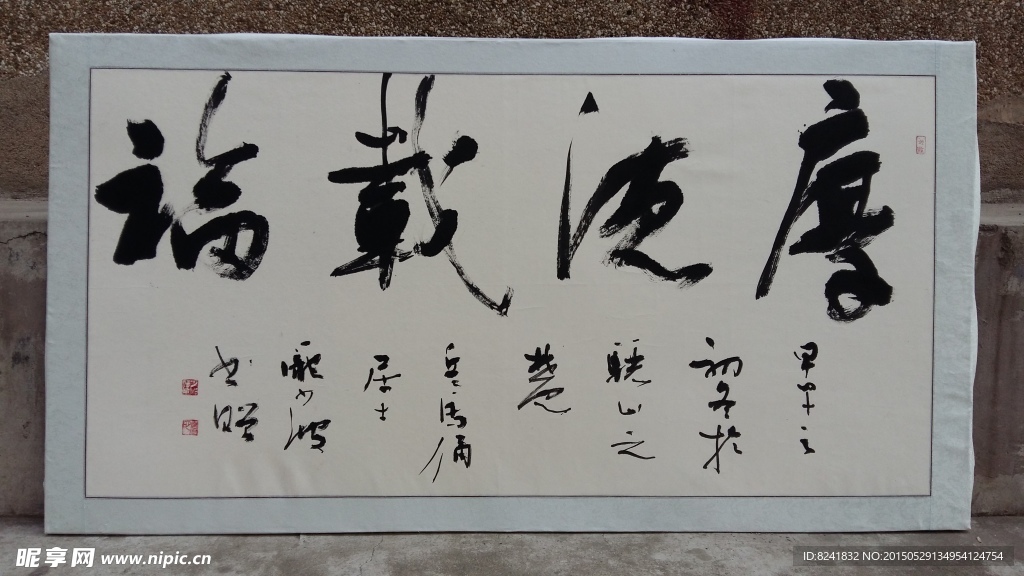 厚德載福
甲午之
初冬於
驪山之
麓
兵马俑
居士
书贈
昵享网 www.nipic.cn
ID:8241832 NO:20150529134954124754